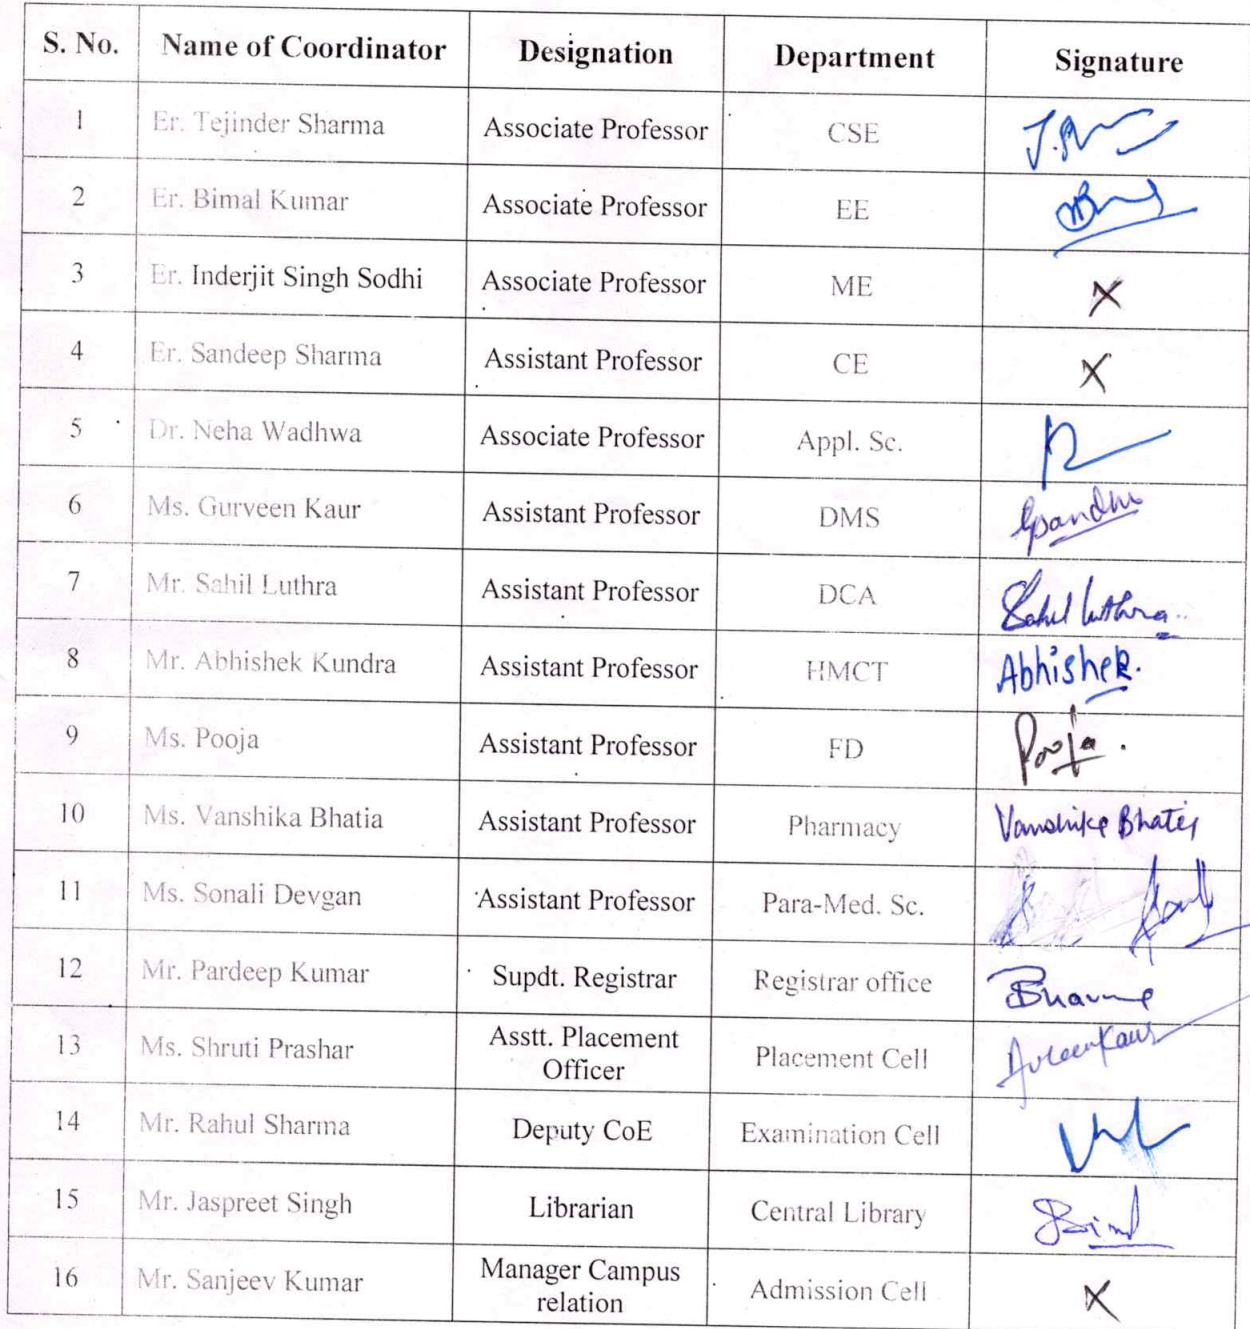 S. No. Name of Coordinator Designation Department Signature
1 Er. Tejinder Sharma Associate Professor CSE
2 Er. Bimal Kumar Associate Professor EE
3 Er. Inderjit Singh Sodhi Associate Professor ME X
4 Er. Sandeep Sharma Assistant Professor CE X
5 Dr. Neha Wadhwa Associate Professor Appl. Sc.
6 Ms. Gurveen Kaur Assistant Professor DMS
7 Mr. Sahil Luthra Assistant Professor DCA Sahil Luthra
8 Mr. Abhishek Kundra Assistant Professor HMCT Abhishek.
9 Ms. Pooja Assistant Professor FD Pooja.
10 Ms. Vanshika Bhatia Assistant Professor Pharmacy Vanshika Bhatia
11 Ms. Sonali Devgan Assistant Professor Para-Med. Sc.
12 Mr. Pardeep Kumar Supdt. Registrar Registrar office
13 Ms. Shruti Prashar Asstt. Placement
Officer Placement Cell
14 Mr. Rahul Sharma Deputy CoE Examination Cell
15 Mr. Jaspreet Singh Librarian Central Library
16 Mr. Sanjeev Kumar Manager Campus
relation Admission Cell X